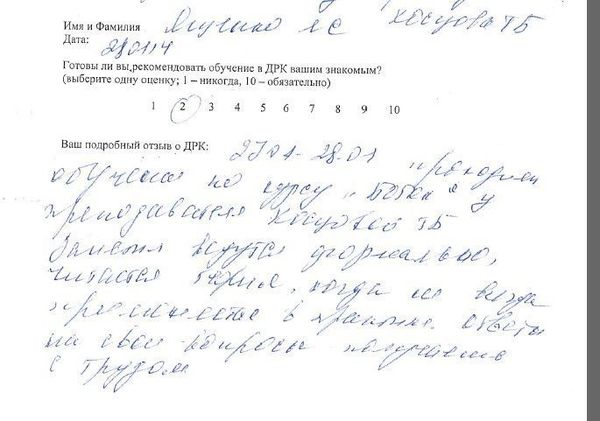 Имя и Фамилия Ягупенко ЛС Косцова ТБ
Дата: 280114
Готовы ли вы рекомендовать обучение в ДРК вашим знакомым?
(выберите одну оценку; 1 – никогда, 10 – обязательно)
1 2 3 4 5 6 7 8 9 10
Ваш подробный отзыв о ДРК: 2701-28.01 проходил
обучение по курсу у
преподавателя Косцовой ТБ
Занятия ведутся формально,
читается теория, когда не везде
в практике. ответы
на свои вопросы получаешь
с трудом